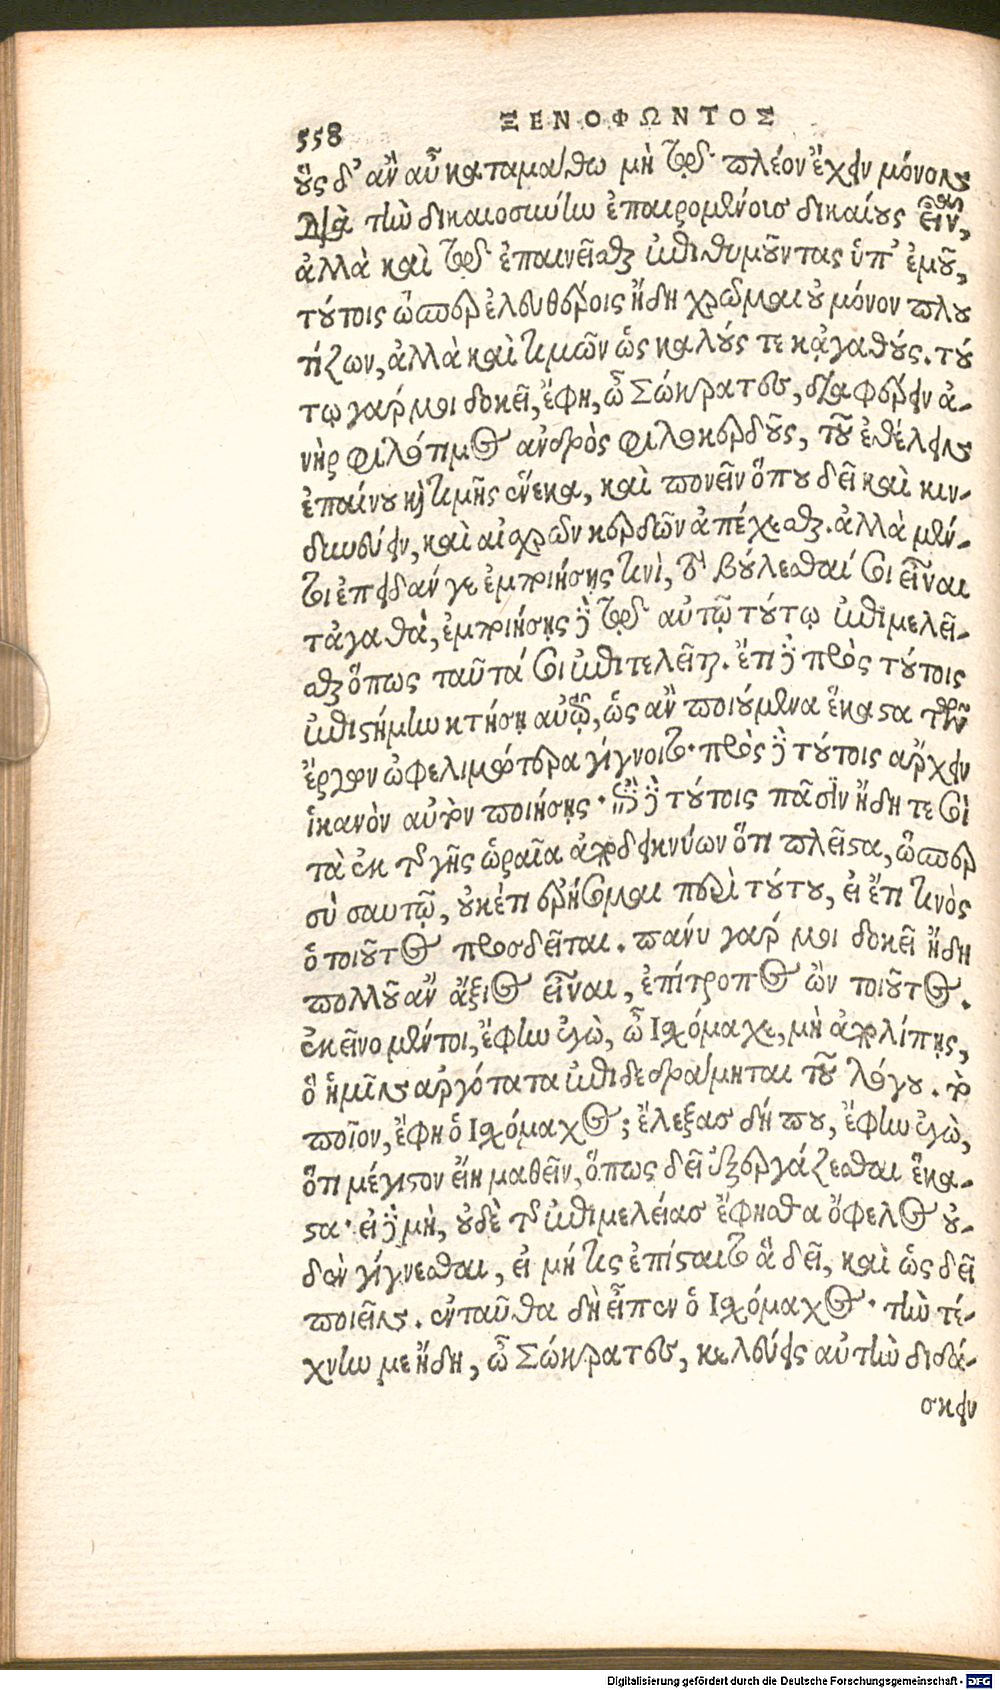 558
ΞΕΝΟΦΩΝΤΟΣ
οὓς δ' ἂν αὖ καταμάθω μὴ τῷ πλέον ἔχειν μόνον
διὰ τὴν δικαιοσύνην ἐπαιρομένοις δικαίους εἶναι,
ἀλλὰ καὶ τῷ ἐπαινεῖσθαι ἐπιθυμοῦντας ὑπ' ἐμοῦ,
τούτοις ὥσπερ ἐλευθέροις ἤδη χρῶμαι οὐ μόνον πλου
τίζων, ἀλλὰ καὶ τιμῶν ὡς καλούς τε κἀγαθούς. τού
τῳ γάρ μοι δοκεῖ, ἔφη, ὦ Σώκρατες, διαφέρειν ἀ-
νὴρ φιλότιμος ἀνδρὸς φιλοκερδοῦς, τοῦ ἐθέλειν
ἐπαίνου καὶ τιμῆς ἕνεκα, καὶ πονεῖν ὅπου δεῖ καὶ κιν-
δυνεύειν, καὶ αἰσχρῶν κερδῶν ἀπέχεσθαι. ἀλλὰ μέν-
τοι ἐπειδάν γε ἐμποιήσῃς τινὶ, τὸ βούλεσθαί σοι εἶναι
τἀγαθὰ, ἐμποιήσῃς δὲ τῷ αὐτῷ τούτῳ ἐπιμελεῖ-
σθαι ὅπως ταῦτά σοι ἐπιτελεῖται. ἔτι δὲ πρὸς τούτοις
ἐπιστήμην κτήσῃ αὐτῷ, ὡς ἂν ποιούμενα ἕκαστα τῶν
ἔργων ὠφελιμώτερα γίγνοιτο· πρὸς δὲ τούτοις ἄρχειν
ἱκανὸν αὐτὸν ποιήσῃς· ἐπὶ δὲ τούτοις πᾶσιν ἥδηταί σοὶ
τὰ ἐκ τῆς γῆς ὡραῖα ἀποδεικνύων ὅτι πλεῖστα, ὥσπερ
σὺ σαυτῷ, οὐκέτι ἐρήσομαι περὶ τούτου, εἰ ἔτι τινὸς
ὁ τοιοῦτος προσδεῖται. πάνυ γάρ μοι δοκεῖ ἤδη
πολλοῦ ἂν ἄξιος εἶναι, ἐπίτροπος ὢν τοιοῦτος.
ἐκεῖνο μέντοι, ἔφην ἐγὼ, ὦ Ἰσχόμαχε, μὴ ἀπολίπῃς,
ὃ ἡμῖν ἀργότατα ἐπιδεδράμηται τοῦ λόγου. τὸ
ποῖον, ἔφη ὁ Ἰσχόμαχος; ἔλεξας δή που, ἔφην ἐγὼ,
ὅτι μέγιστον εἴη μαθεῖν, ὅπως δεῖ ἐξεργάζεσθαι ἕκα-
στα· εἰ δὲ μὴ, οὐδὲ τῆς ἐπιμελείας ἔφησθα ὄφελος οὐ-
δὲν γίγνεσθαι, εἰ μή τις ἐπίσταιτο ἃ δεῖ, καὶ ὡς δεῖ
ποιεῖν. ἐνταῦθα δὴ εἶπεν ὁ Ἰσχόμαχος· τὴν τέ-
χνην με ἤδη, ὦ Σώκρατες, κελεύεις αὐτὴν διδά-
σκειν
Digitalisierung gefördert durch die Deutsche Forschungsgemeinschaft - DFG